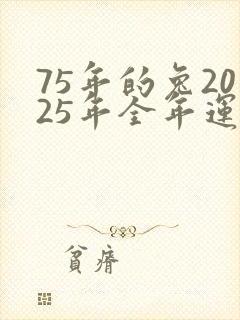 75年的兔20
25年全年運
貧瘠